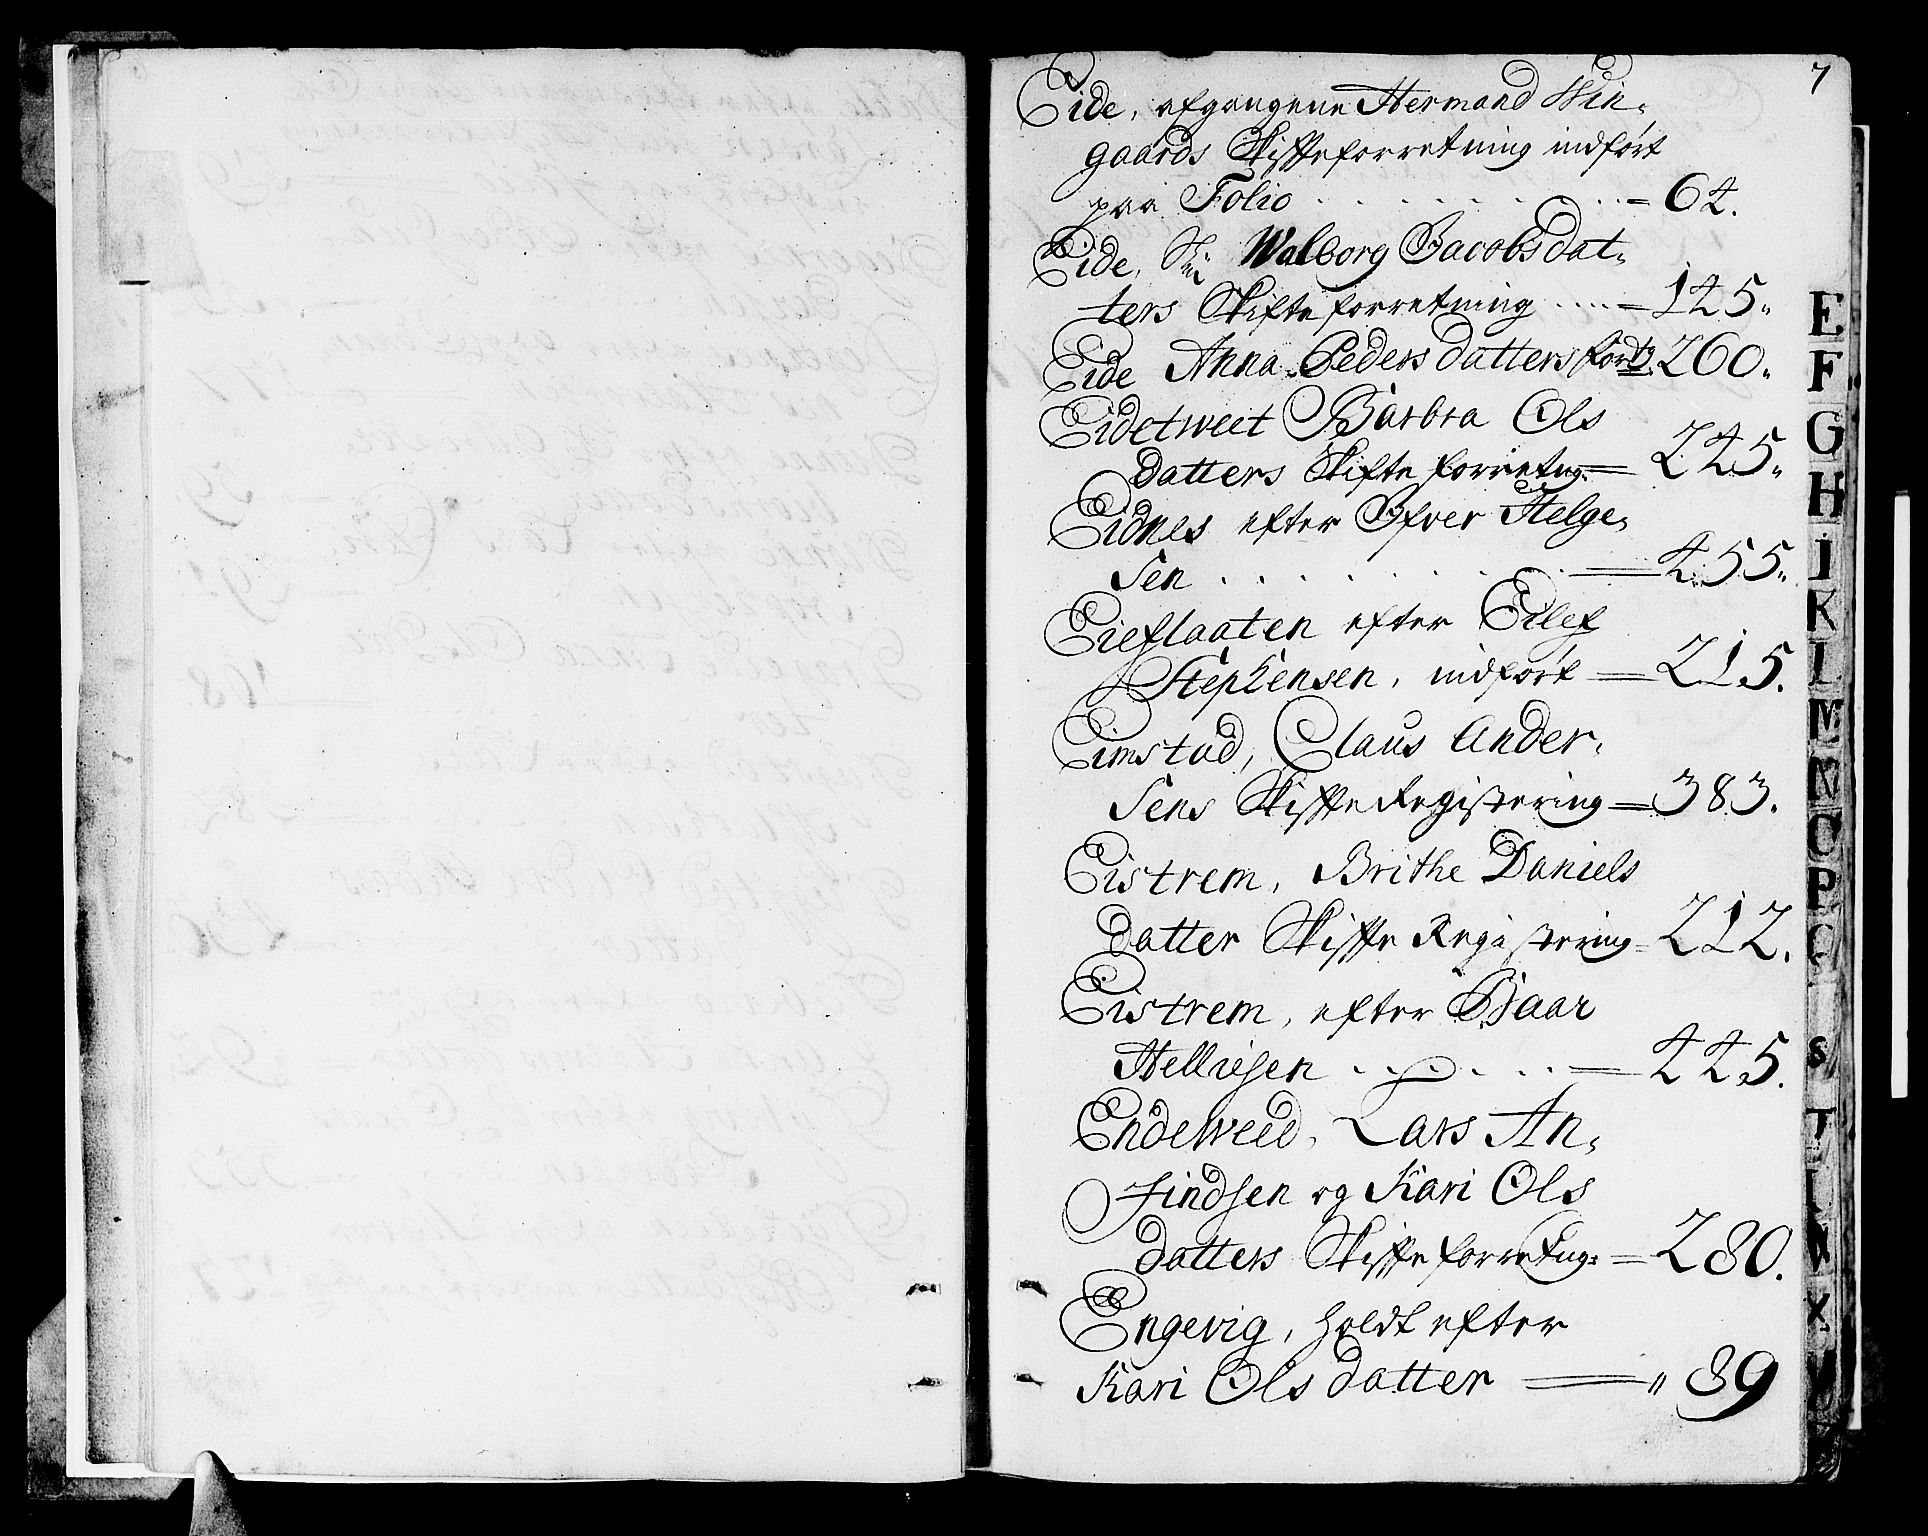 7
Eide, afgangene Hermand Win,
gaards Skifteforretning indført
paa Folio . . . . . . . . = 64.
Eide, Walborg Jacobsdat,
ters Skifte forretning ..... = 125.
Eide Anna Peders datters 260.
Eidetweet Barbra Ols
datters Skifte forretng. = 245.
Eidnes efter Ifver Helge,
sen . . . . . . . . = 455.
Eieflaaten efter Eilef
Stephensen, indført = 215.
Eimstad, Claus Ander,
sens Skifte Registering = 383.
Eistrem, Brithe Daniels
datter Skifte Registering = 212.
Eistrem, efter Baar
Helliesen . . . . . . = 445.
Endeweed, Lars An,
findsen og Kari Ols
datters Skifte forretng: = 280.
Engevig, holdt efter
Kari Ols datter = " 89
E
F
G
H
I
K
L
M
N
O
P
Q
S
T
U
W
X